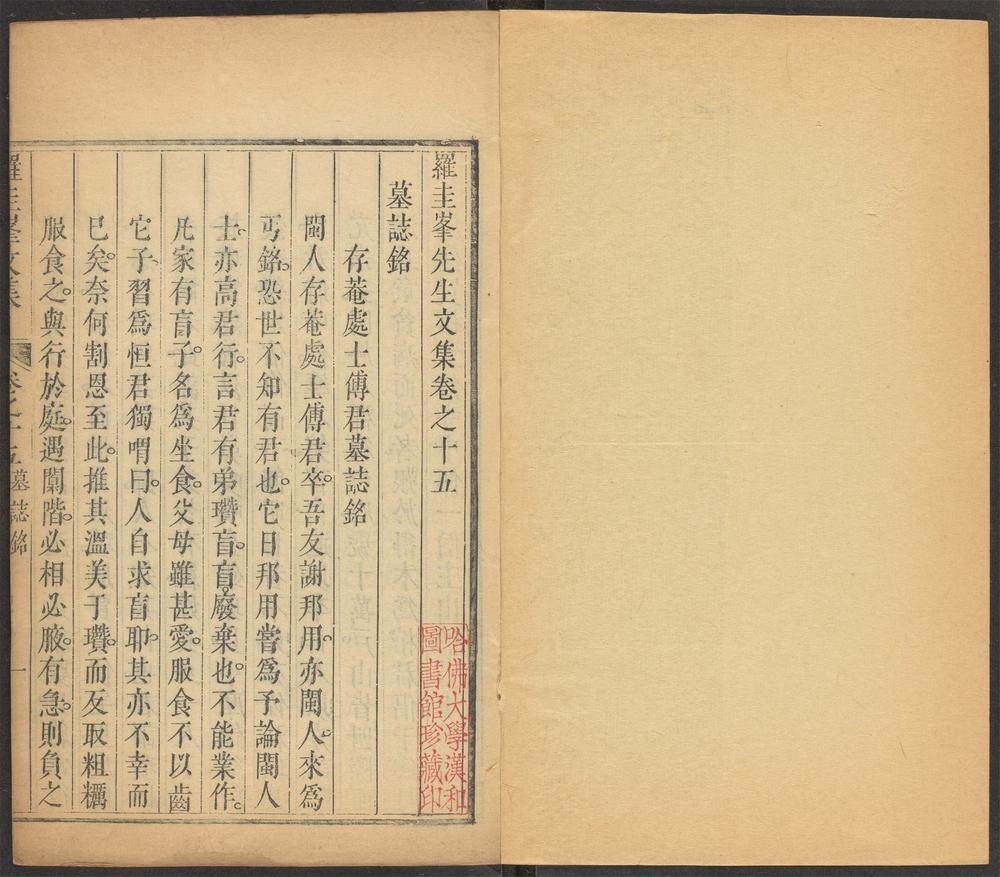 羅圭峯先生文集卷之十五
哈佛大學漢和
圖書館珍藏印
墓誌銘
存菴處士傅君墓誌銘
閩人存菴處士傅君卒。吾友謝邦用。亦閩人。來爲
丐銘。恐世不知有君也。它日邦用嘗爲予論閩人
士。亦高君行。言君有弟瓚盲。盲廢棄也。不能業作。
凡家有盲子。名爲坐食。父母雖甚愛。服食不以齒
它子。習爲恒君獨喟曰。人自求盲耶。其亦不幸而
已矣。奈何割恩至此。推其溫美于瓚。而反取粗糲
服食之。與行於庭。遇闑階。必相必腋。有急。則負之
羅圭峯文集
卷之十五
墓誌銘
一